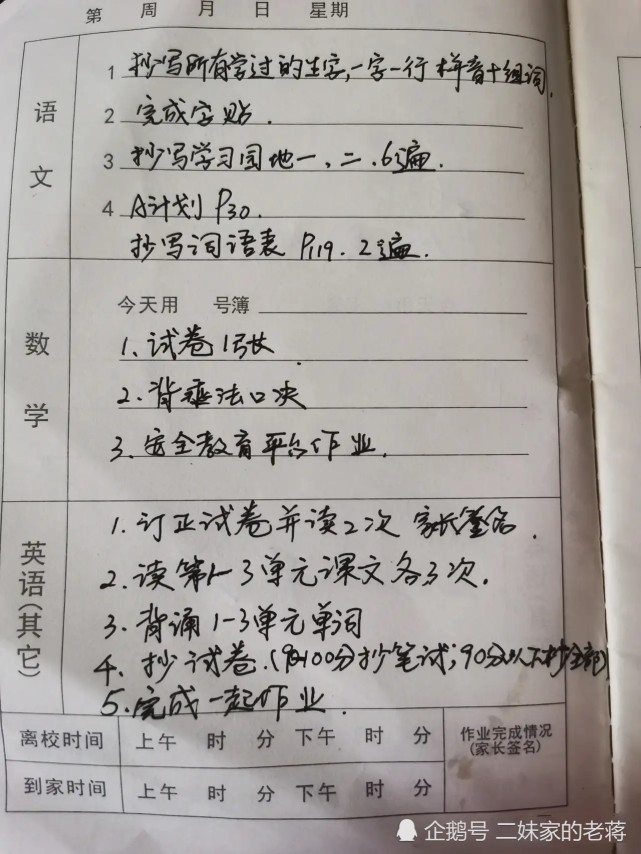 第 周 月 日 星期
语文
1 抄写所有学过的生字,一字一行 拼音十组词.
2 完成字贴.
3 抄写学习园地一、二.6遍.
4 A计划 P30.
抄写词语表 P119. 2遍.
数学
今天用 号簿
1、试卷1张
2、背乘法口决
3、安全教育平台作业.
英语(其它)
1. 订正试卷并读2次 家长签名.
2. 读第1-3单元课文各3次.
3. 背诵1-3单元单词
4. 抄试卷.(100分抄笔试;90分以下抄全部)
5. 完成一起作业.
离校时间 上午 时 分 下午 时 分
作业完成情况
(家长签名)
到家时间 上午 时 分 下午 时 分
企鹅号 二妹家的老蒋